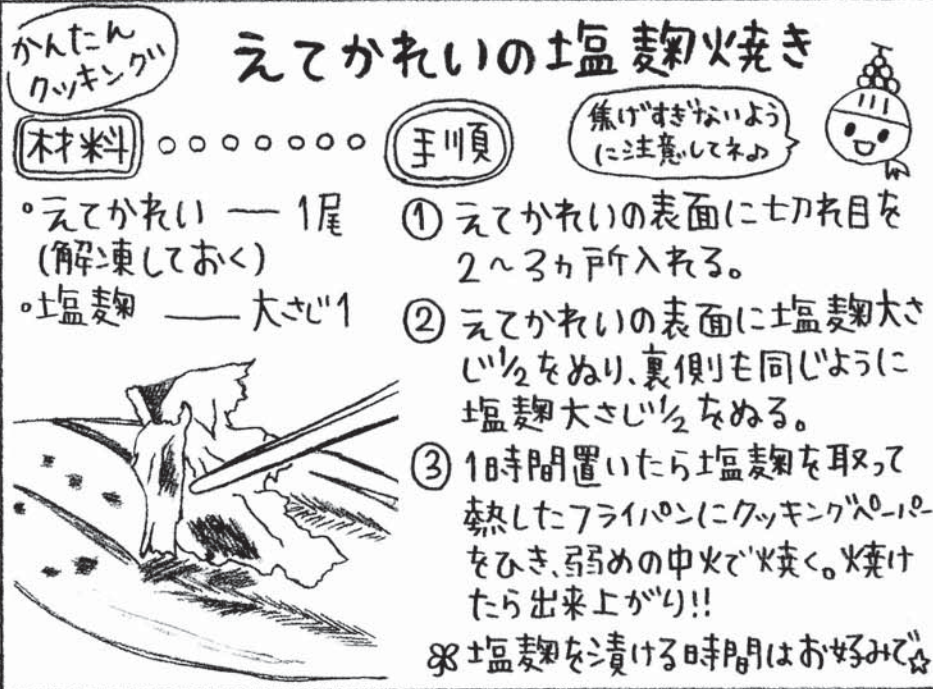 かんたん
クッキング
えてかれいの塩麹焼き
焦げすぎないよう
に注意してネ♪
材料
手順
・えてかれい ― 1尾
(解凍しておく)
・塩麹 ― 大さじ1
① えてかれいの表面に切れ目を
2～3ヵ所入れる。
② えてかれいの表面に塩麹大さ
じ1/2をぬり、裏側も同じように
塩麹大さじ1/2をぬる。
③ 1時間置いたら塩麹を取って
熱したフライパンにクッキングペーパー
をひき、弱めの中火で焼く。焼け
たら出来上がり!!
塩麹を漬ける時間はお好みで☆